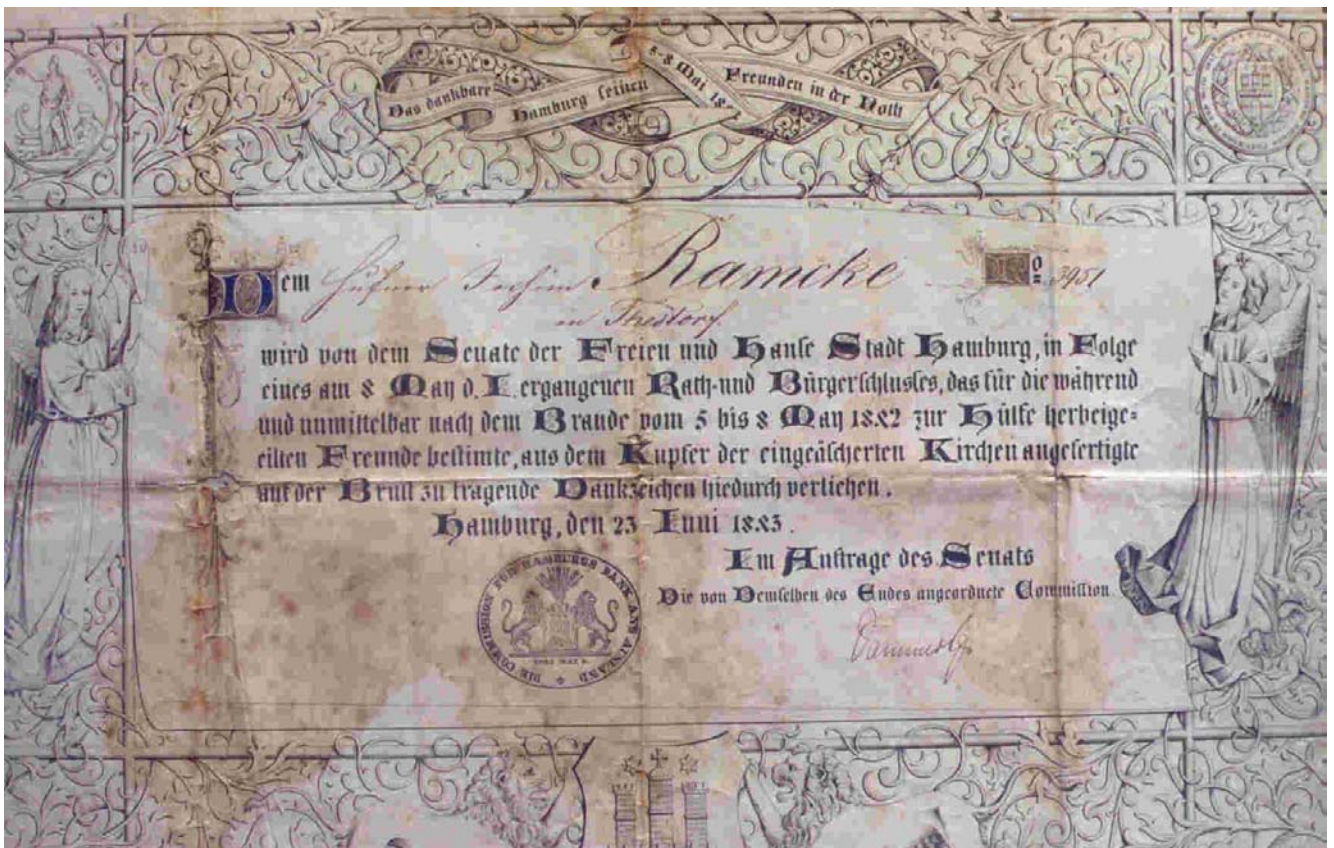 Das dankbare Hamburg seinen Freunden in der Noth
5-8 Mai
Dem Hufner Jochim Ramcke No 3951
in Thestorf.
wird von dem Senate der Freien und Hanse Stadt Hamburg, in Folge
eines am 8 May d. J. ergangenen Rath-und Bürgerschlusses, das für die während
und unmittelbar nach dem Brande vom 5 bis 8 May 1842 zur Hülfe herbeige=
eilten Freunde bestimte, aus dem Kupfer der eingeäscherten Kirchen angefertigte
auf der Brust zu tragende Dankzeichen hiedurch verliehen.
Hamburg, den 23 Juni 1843.
Im Auftrage des Senats
Die von Demselben des Endes angeordnete Commission
DIE COMMISSION FÜR HAMBURGS DANK ANS AUSLAND